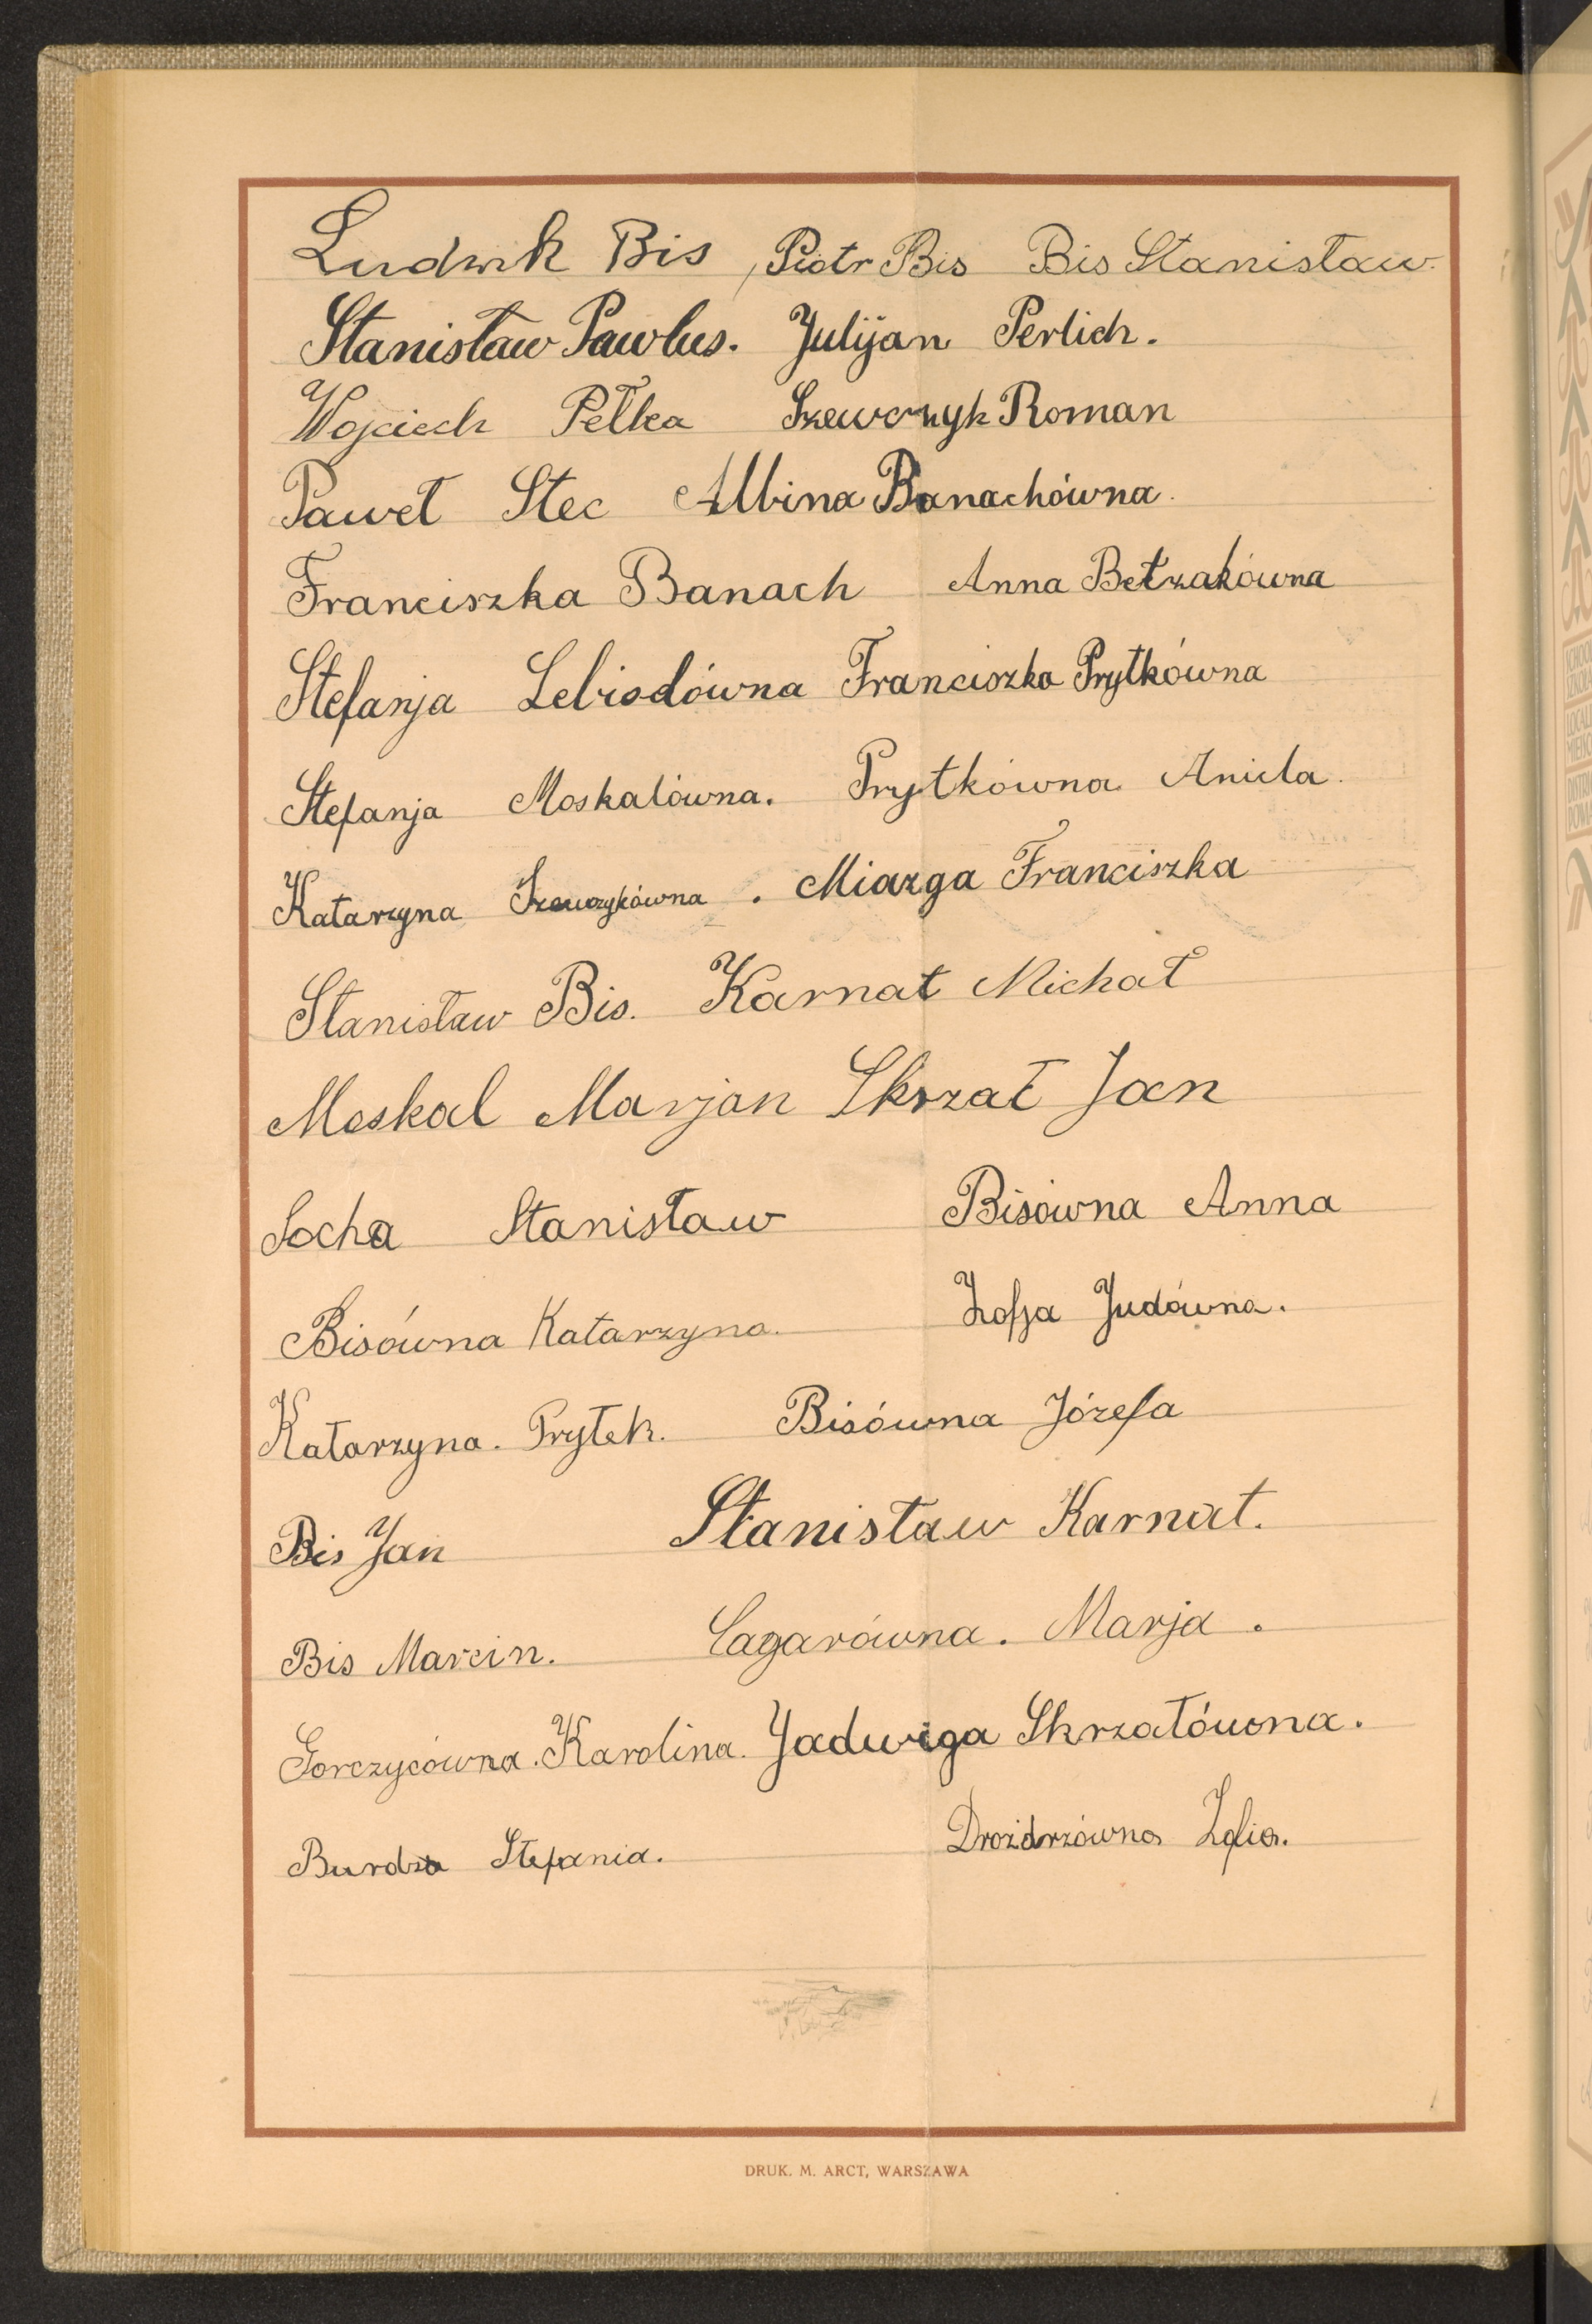 Ludwik Bis, Piotr Bis Bis Stanisław.
Stanisław Pawlus. Julijan Perlich.
Wojciech Pełka Szewczyk Roman
Paweł Stec Albina Banachówna.
Franciszka Banach Anna Betzakówna
Stefanja Lebiodówna Franciszka Prytkówna
Stefanja Moskalówna. Prytkówna Aniela.
Katarzyna Szewczykówna. Miazga Franciszka
Stanisław Bis. Karnat Michał
Moskal Marjan Skrzat Jan
Socha Stanisław Bisówna Anna
Bisówna Katarzyna. Zofja Judówna.
Katarzyna. Prytek. Bisówna Józefa
Bis Jan Stanisław Karnat.
Bis Marcin. Cagarówna. Marja.
Gorczycówna. Karolina. Jadwiga Skrzatówna.
Burdza Stefania. Drożdrzówna Zofia.
DRUK. M. ARCT, WARSZAWA